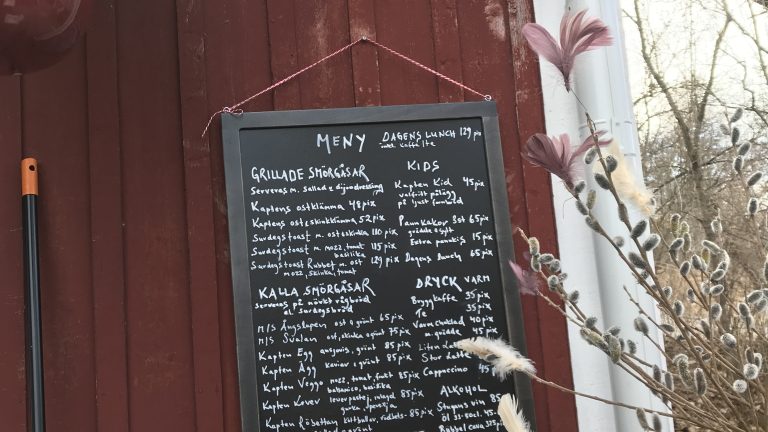 MENY
DAGENS LUNCH 129 pix
inkl kaffe/te
GRILLADE SMÖRGÅSAR
Serveras m. sallad & dijondressing
Kaptens ostklämma 48 pix
Kaptens ost & skinkklämma 52 pix
Surdegstoast m. ost & skinka 110 pix
Surdegstoast m. mozz, tomat 115 pix
basilika
Surdegstoast Rubbet m. ost 129 pix
mozz, skinka, tomat
KALLA SMÖRGÅSAR
serveras på rågbröd
el. surdegsbröd
M/S Ängslupen ost & grönt 65 pix
M/S Svalan ost, skinka, grönt 75 pix
Kapten Egg ansjovis, grönt 85 pix
Kapten Ägg kaviar, grönt 85 pix
Kapten Veggo mozz, tomat, 85 pix
balsamico, basilika
Kapten Kever leverpastej, 85 pix
gurka, persilja
Kapten Röbettan köttbullar, 85 pix
KIDS
Kapten Kid 45 pix
valfritt pålägg
på ljust
Pannkakor 3st 65 pix
grädde & sylt
Extra pannkis 15 pix
Dagens lunch 65 pix
DRYCK VARM
Bryggkaffe 35 pix
Te 35 pix
Varm choklad 40 pix
m. grädde 45 pix
Liten
Stor latte
Cappuccino 45
ALKOHOL
Stugans vin 85
Öl 33-50cl. 45-
Bubbel Cava